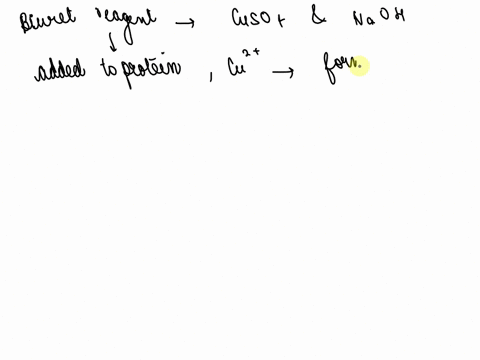 Biuret reagent → CuSO4 & NaOH
↓
added to protein, Cu2+ → for